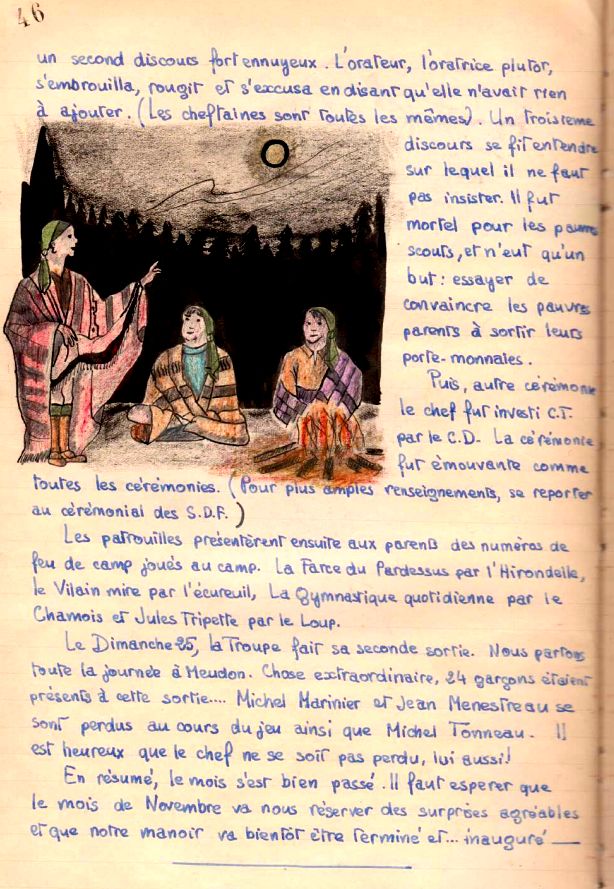 46
un second discours fort ennuyeux. L'orateur, l'oratrice plutôt,
s'embrouilla, rougit et s'excusa en disant qu'elle n'avait rien
à ajouter. (Les cheftaines sont toutes les mêmes). Un troisième
discours se fit entendre
sur lequel il ne faut
pas insister. Il fut
mortel pour les pauvres
scouts, et n'eut qu'un
but : essayer de
convaincre les pauvres
parents à sortir leurs
porte-monnaies.
Puis, autre cérémonie
le chef fut investi C.T.
par le C.D. La cérémonie
fut émouvante comme
toutes les cérémonies. (Pour plus amples renseignements, se reporter
au cérémonial des S.D.F.)
Les patrouilles présentèrent ensuite aux parents des numéros de
feu de camp joués au camp. La Farce du Pardessus par l'Hirondelle,
le Vilain mire par l'écureuil, La Gymnastique quotidienne par le
Chamois et Jules Tripette par le Loup.
Le Dimanche 25, la Troupe fait sa seconde sortie. Nous partons
toute la journée à Meudon. Chose extraordinaire, 24 garçons étaient
présents à cette sortie.... Michel Marinier et Jean Menestreau se
sont perdus au cours du jeu ainsi que Michel Tonneau. Il
est heureux que le chef ne se soit pas perdu, lui aussi!
En résumé, le mois s'est bien passé. Il faut esperer que
le mois de Novembre va nous réserver des surprises agréables
et que notre manoir va bientôt être terminé et... inauguré —